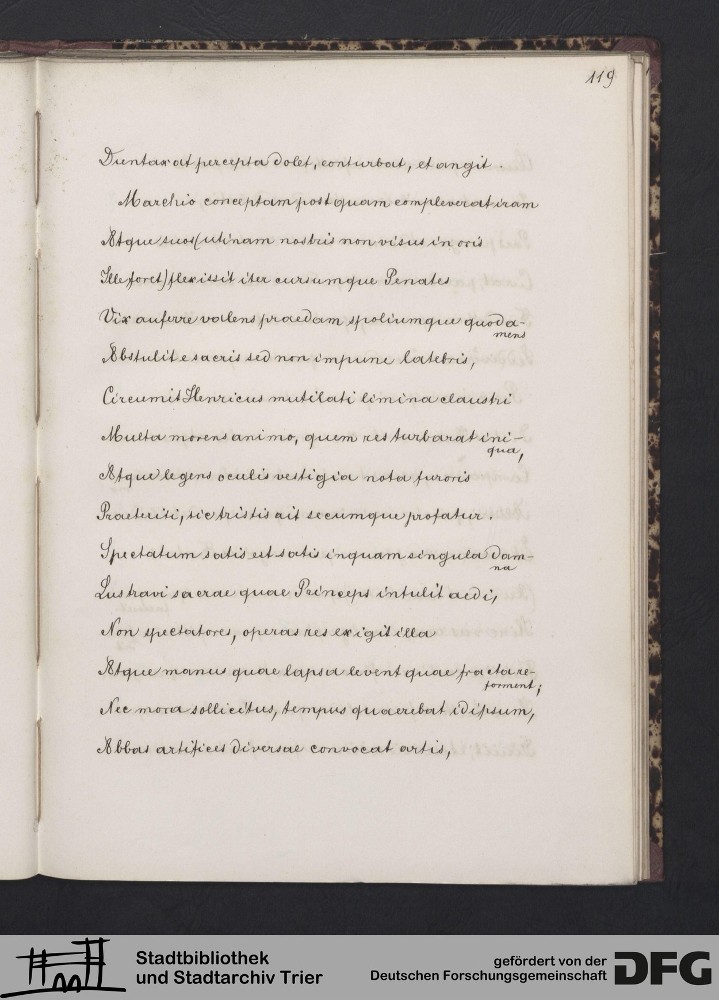 119
Duntaxat percepta dolet, conturbat, et angit.
Marchio conceptam postquam compleverat iram
Atque suos (utinam nostris non visus in oris
Ille foret) flexissit iter cursumque Penates
Vix auferre valens praedam spoliumque quoda-
mens
Abstulit e sacris sed non impune latebris,
Circumit Henricus mutilati limina claustri
Multa movens animo, quem res turbarat ini-
qua,
Atque legens oculis vestigia nota furoris
Praeteriti, sic tristis ait secumque profatur.
Spectatum satis est satis inquam singula dam-
na
Lustravi sacrae quae Princeps intulit aedi,
Non spectatores, operas res exigit illa
Atque manus quae lapsa levent quae fracta re-
forment;
Nec mora sollicitus, tempus quaerebat id ipsum,
Abbas artifices diversae convocat artis,
Stadtbibliothek
und Stadtarchiv Trier
gefördert von der
Deutschen Forschungsgemeinschaft
DFG